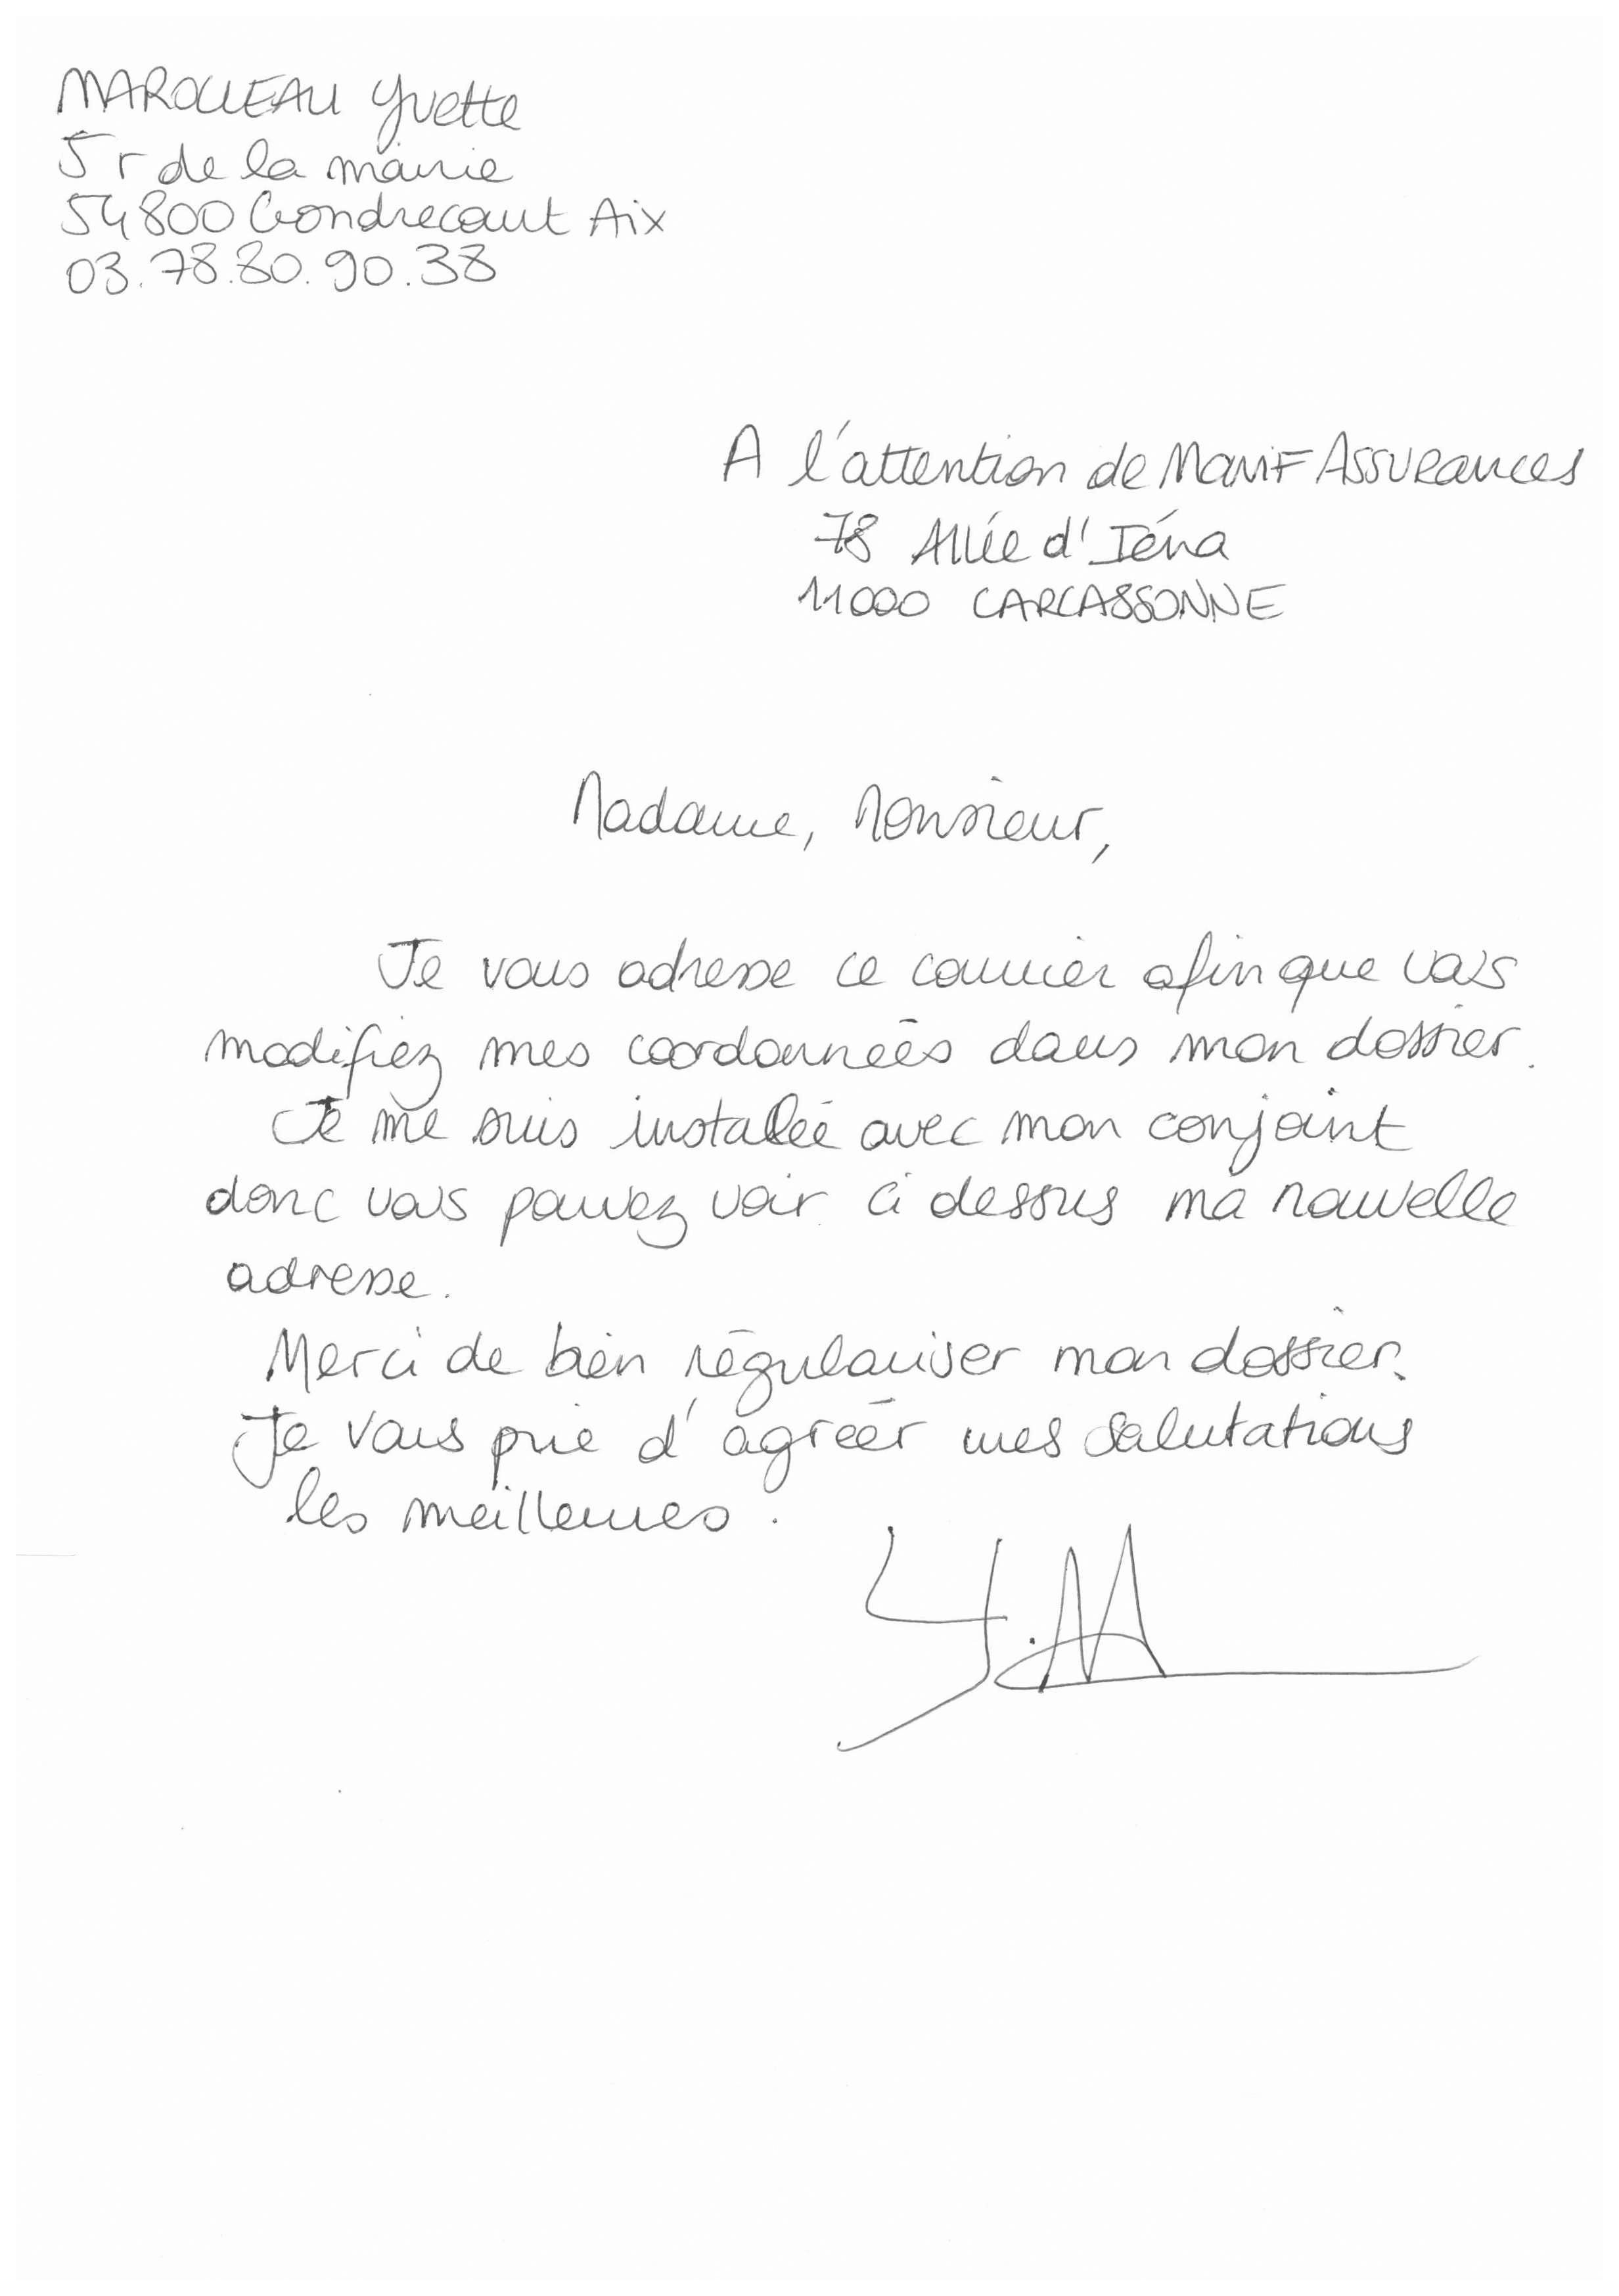 MAROLLEAU Yvette
5 r de la mairie
54800 Gondrecourt Aix
03.78.80.90.38
A l'attention de Manif Assurances
78 Allée d'Iéna
11000 CARCASSONNE
Madame, Monsieur,
Je vous adresse ce courrier afin que vous
modifiez mes coordonnées dans mon dossier.
Je me suis installée avec mon conjoint
donc vous pouvez voir ci dessus ma nouvelle
adresse.
Merci de bien régulariser mon dossier.
Je vous prie d'agréer mes salutations
les meilleures.
Y.M